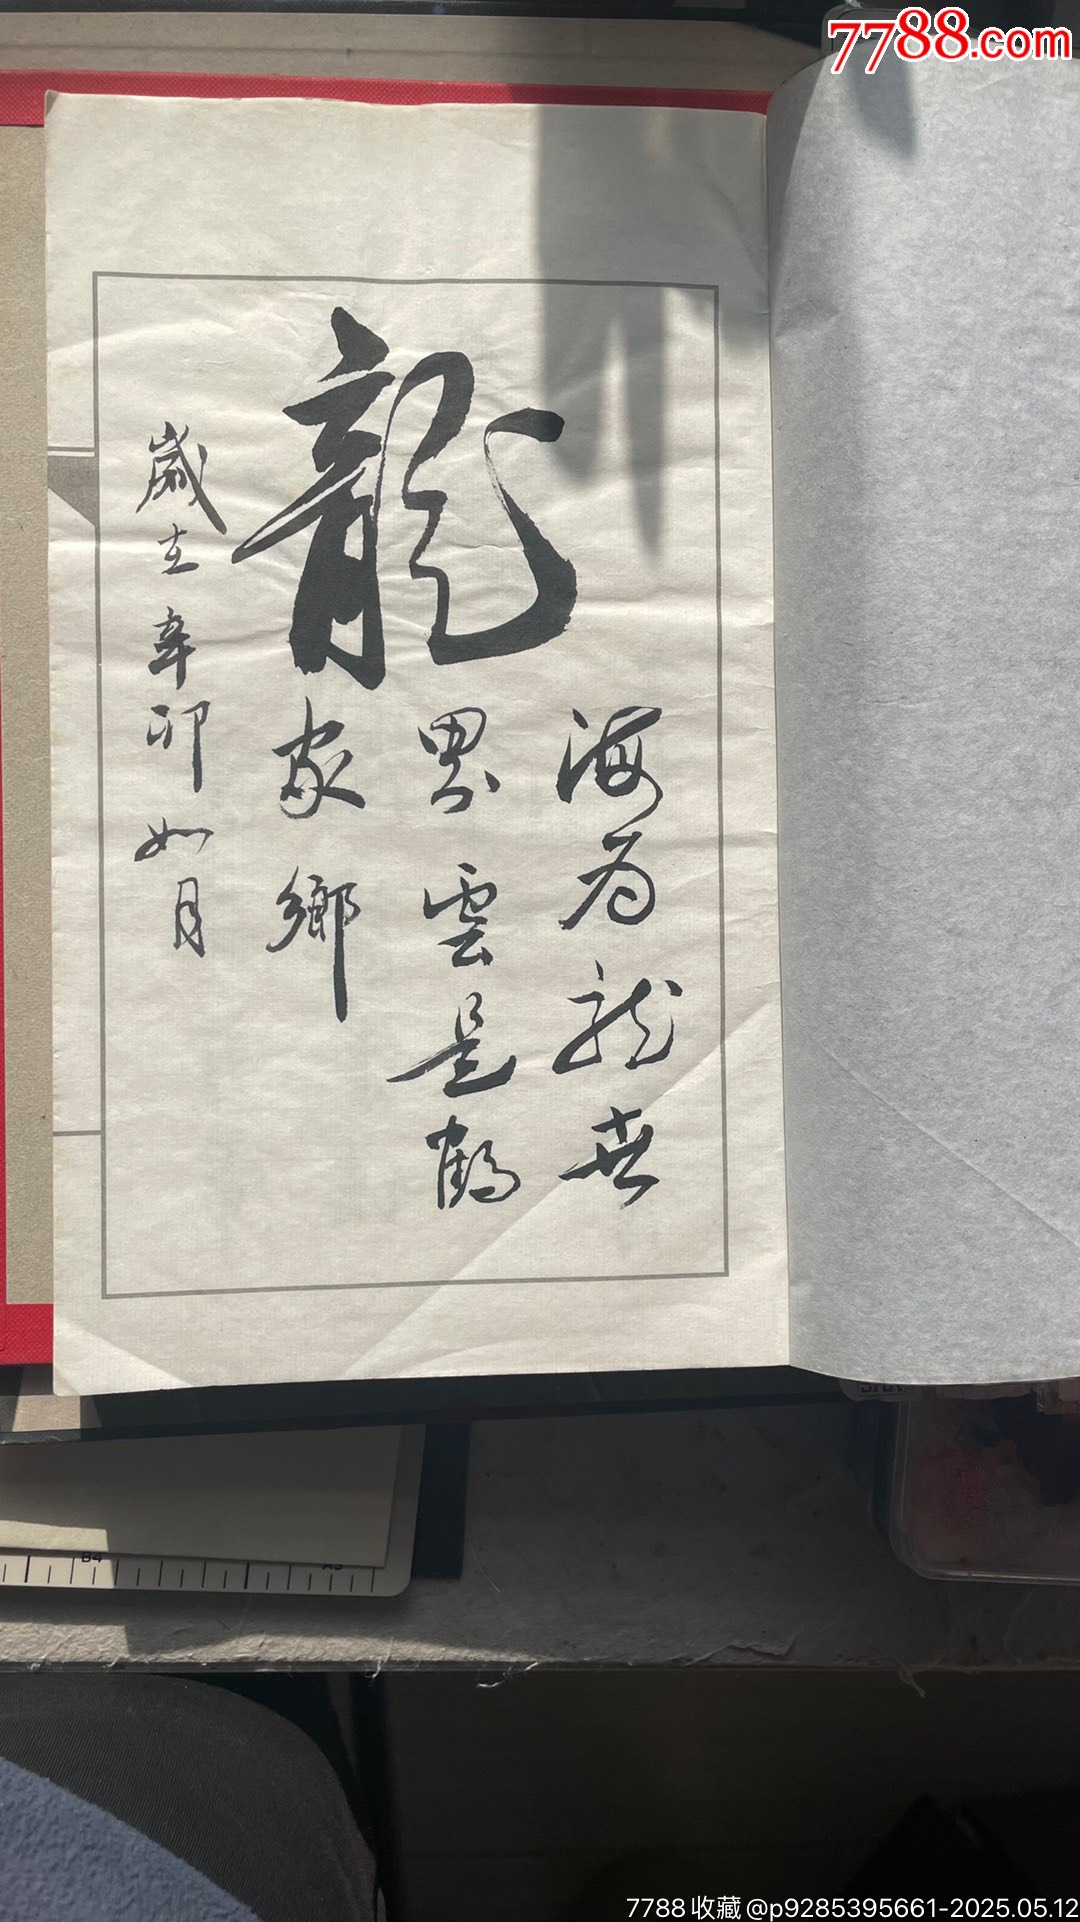 7788.com
龍
海为龙世
界雲是鶴
家鄉
歲在辛卯如月
B4
A5
7788收藏@p9285395661-2025.05.12